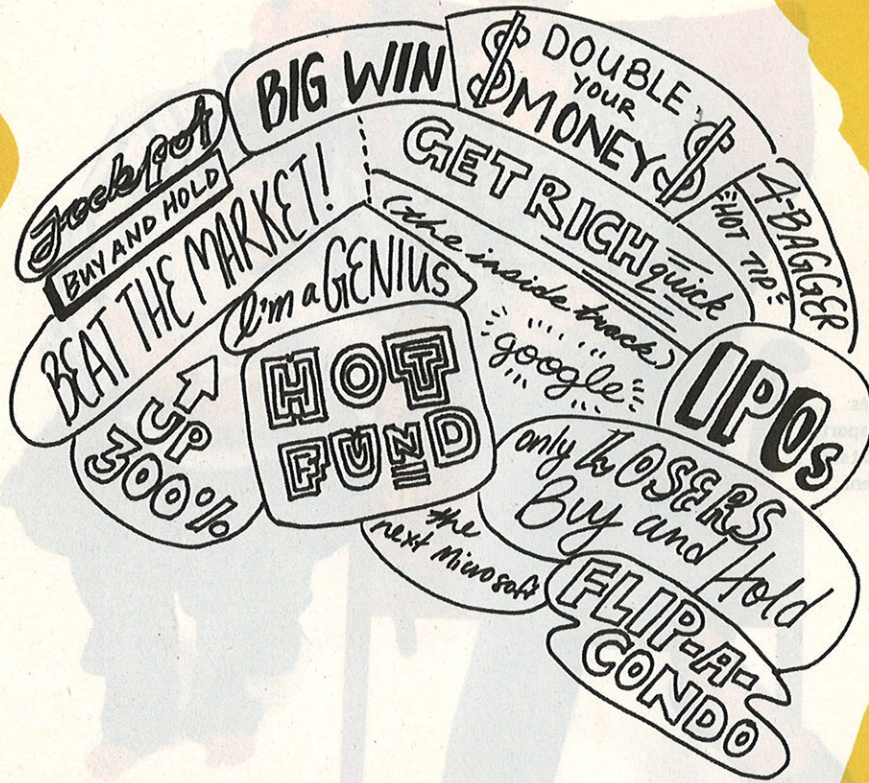 Jackpot
BUY AND HOLD
BIG WIN
$ DOUBLE
YOUR
MONEY $
4-BAGGER
HOT TIP
GET RICH quick
BEAT THE MARKET!
(the inside track)
I'm a GENIUS
google
IPOs
HOT
FUND
UP
300%
only LOSERS
Buy and Hold
the
next Microsoft
FLIP-A-
CONDO